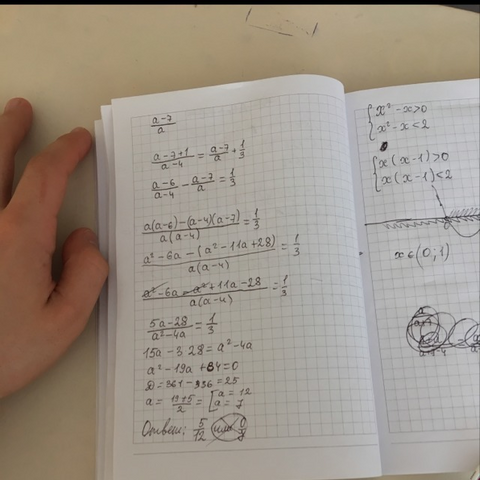 a-7/a
a-7+1/a-4 = a-7/a + 1/3
a-6/a-4 - a-7/a = 1/3
a(a-6)-(a-4)(a-7)/a(a-4) = 1/3
a²-6a-(a²-11a+28)/a(a-4) = 1/3
a²-6a-a²+11a-28/a(a-4) = 1/3
5a-28/a²-4a = 1/3
15a-3 28=a²-4a
a²-19a+84=0
D=361-336=25
a=19±5/2=[a=12
a=7
Ответ: 5/12 или 0/7
{x²-x>0
x²-x<2
{x(x-1)>0
x(x-1)<2
x∈(0;1)